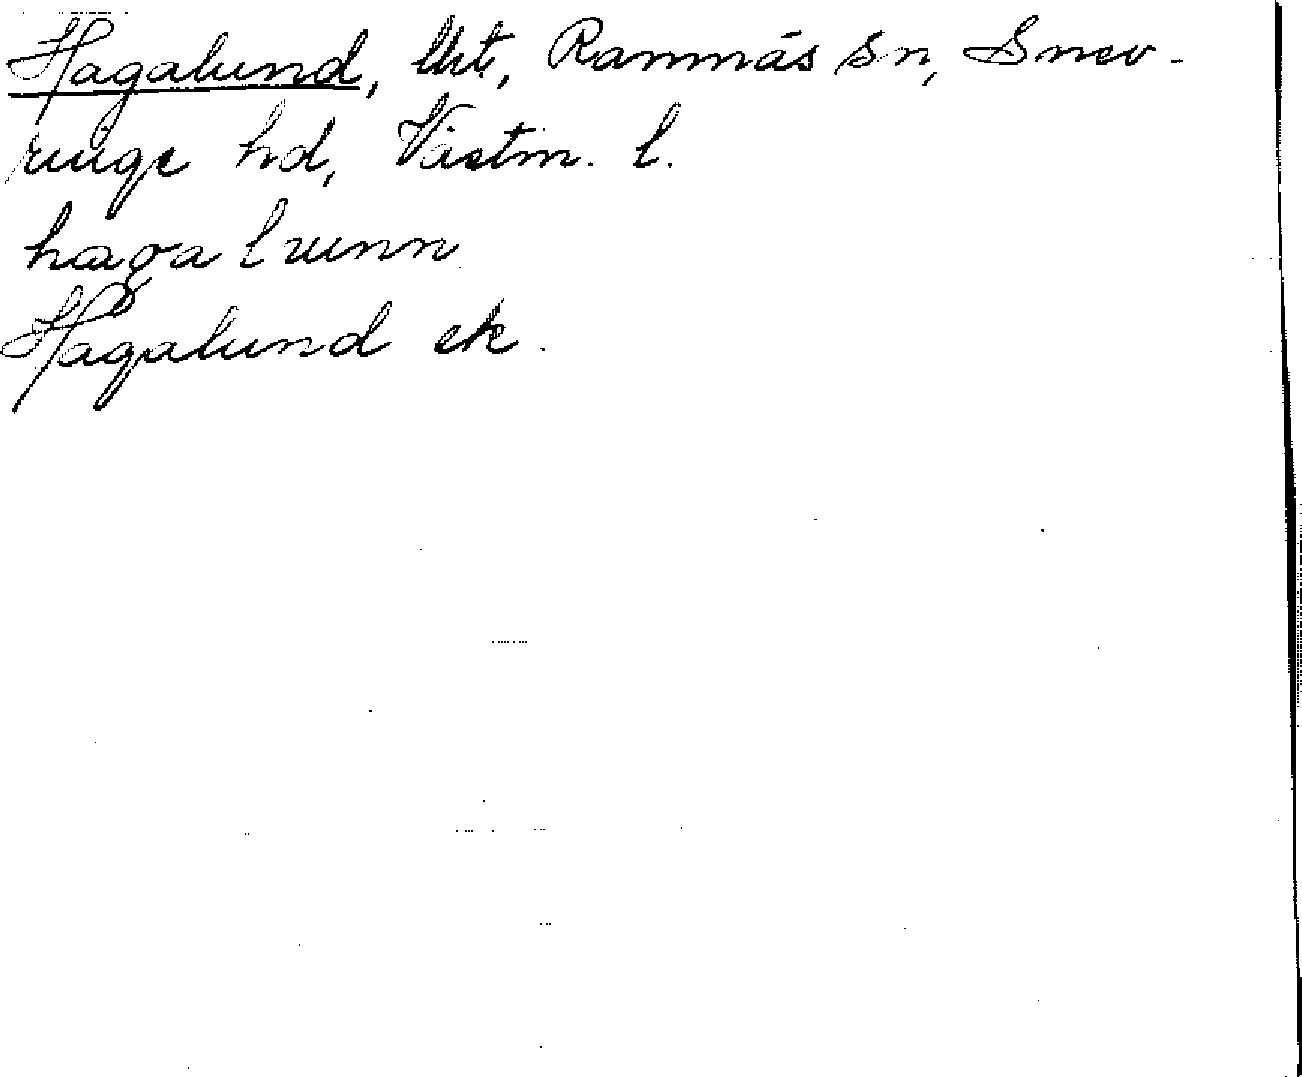 Hagalund, lht, Ramnäs sn, Snev-
ringe hd, Västm. l.
haga lvnn
Hagalund ek.